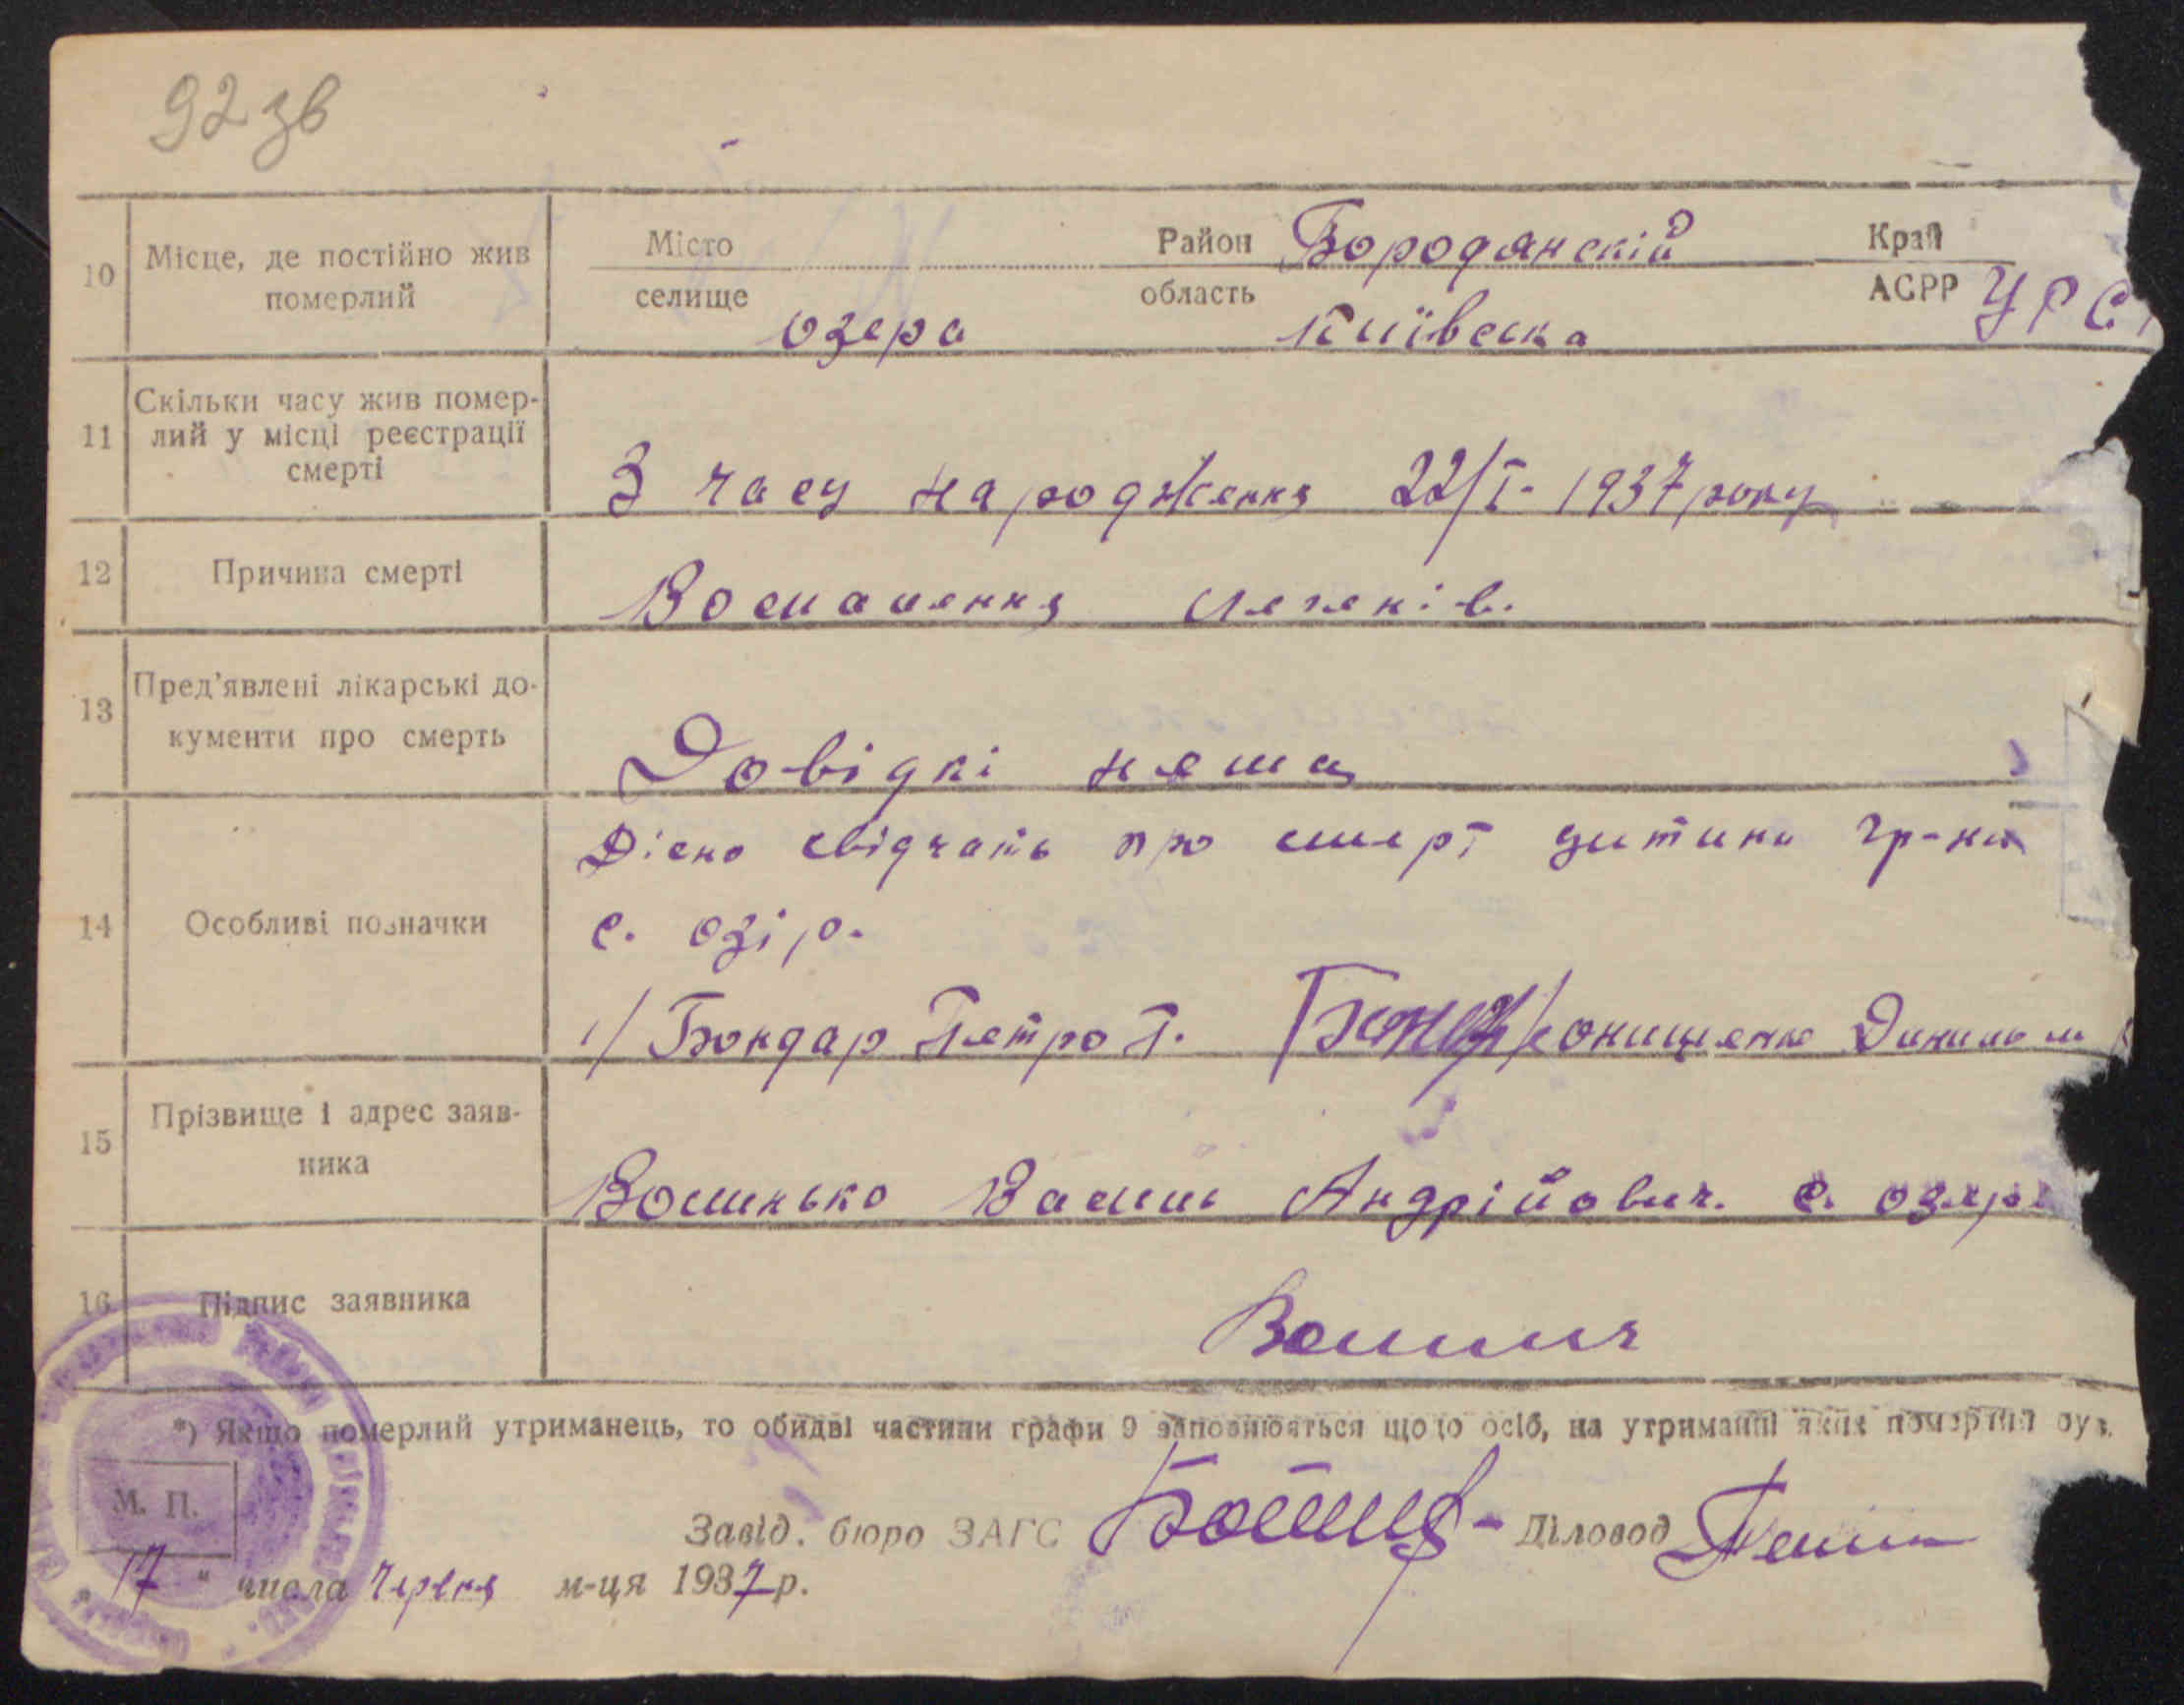 92 зв
10 Місце, де постійно жив померлий
Місто
селище озера
Район Бородянскій
область Київска
Край
АСРР УРС
11 Скільки часу жив помер-
лий у місці реєстрації
смерті
З часу народження 22/I- 1937 року
12 Причина смерті
Воспалення легенів.
13 Пред'явлені лікарські до-
кументи про смерть
Довідкі нема
14 Особливі позначки
Дісно свідчать про смерт дитини гр-ни
с. озір.
1/ Бондар Петро Г. Онищенко
15 Прізвище і адрес заяв-
ника
Волинько Василь Андрійович. с. озера
16 Підпис заявника
*) Якщо померлий утриманець, то обидві частини графи 9 заповнюються щодо осіб, на утриманні яких померлий був.
М. П.
Завід. бюро ЗАГС Діловод
„17“ числа Червня м-ця 1937 р.